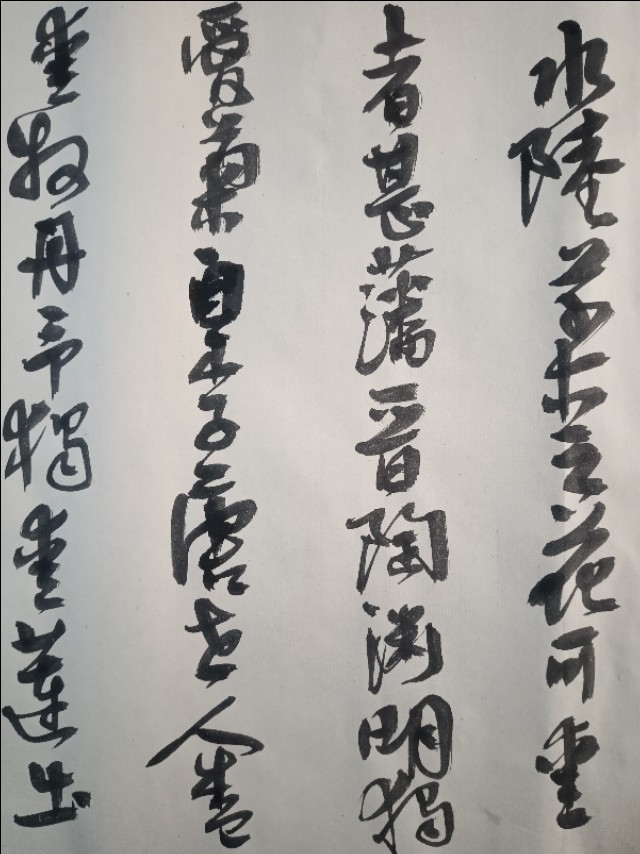 水陸草木之花可愛
者甚藩晋陶渊明獨
愛菊自李唐世人盛
愛牡丹予獨愛蓮出